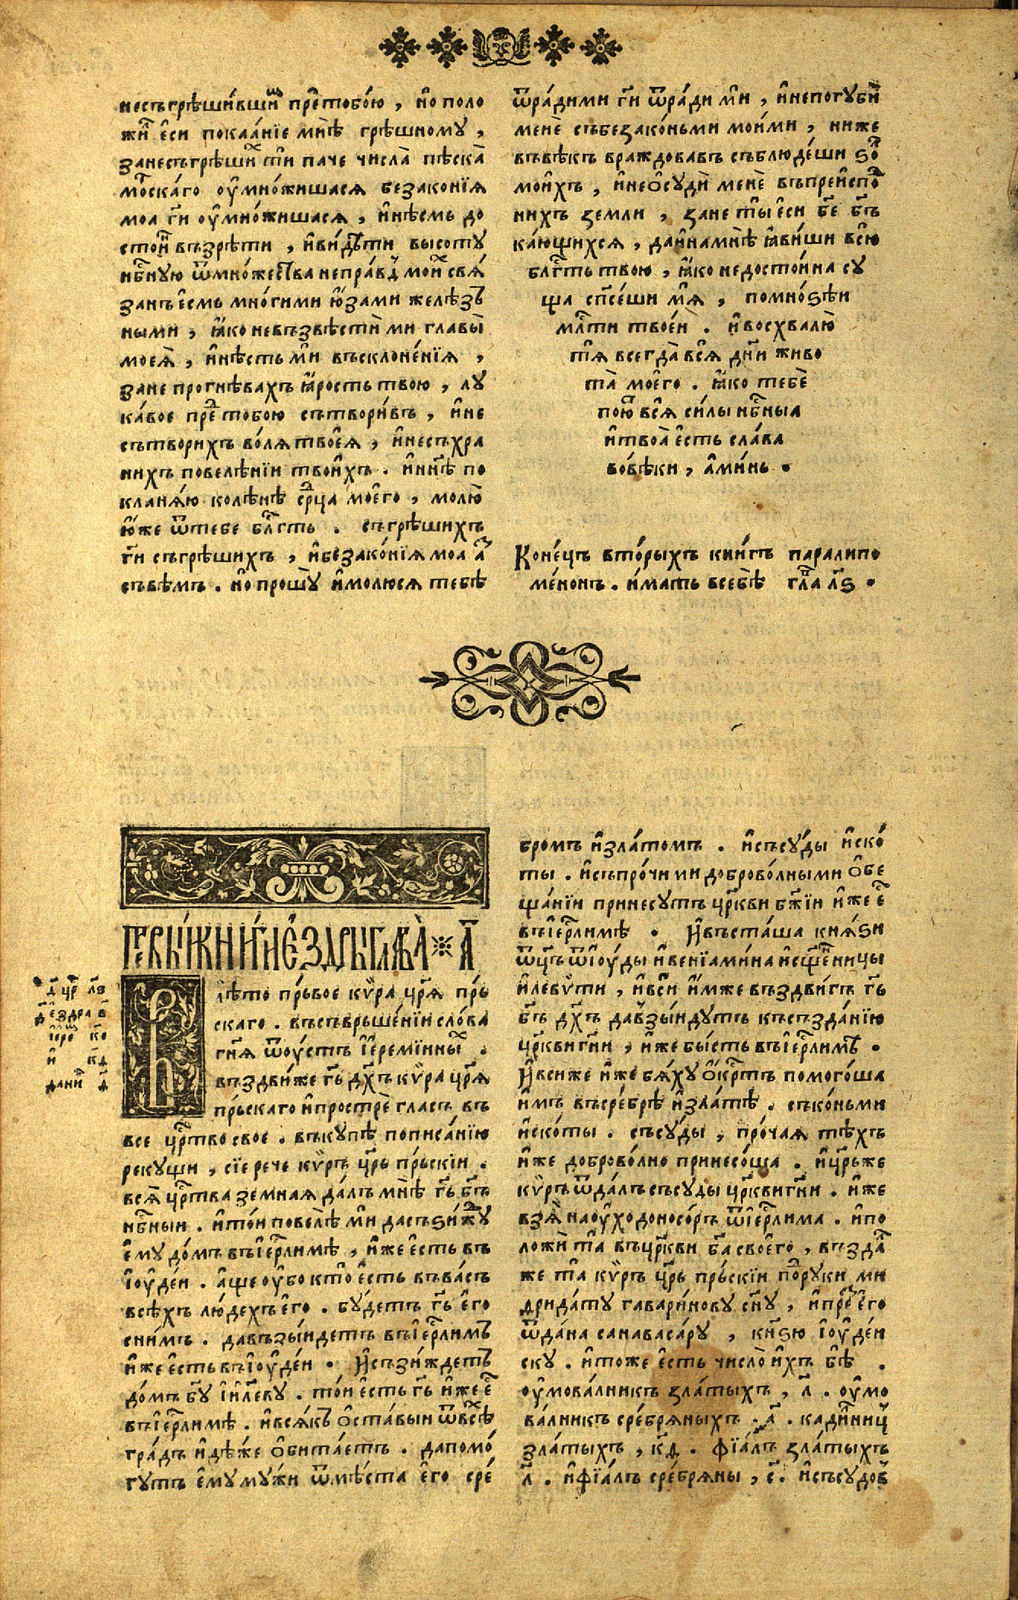 несъгрѣши́вши́х прє́тобо́ю , но́ поло
жи́л є҆си покаа́нїе мнѣ̀ грѣ́шному ,
занесъгрѣши́х тѝ паче числа̀ пѣска̀
мо́рскаго оу҆мно́жишася беꙁако́нїꙗ
моа гн҃и оу҆мно́жишася , и҆нѣ́смь до
сто́ин въꙁрѣ́ти , и҆ви́дѣти высотꙋ
нб҃нꙋю ѿмно́жества непра́вд мои́х свя́
ꙁанъ є҆смь мно́гими ю҆́ꙁами желѣ́ꙁъ
ными , ꙗ҆́ко невъꙁвѣстѝ ми главы̀
моеꙗ̀ , и҆нѣ́сть мѝ въсклоне́нїꙗ ,
ꙁане прогнѣвахъ ꙗ҆рость твою , лꙋ
ка́вое пред тобою сътвори́въ , и҆не
сътворихъ во́лꙗ твоеꙗ̀ , и҆несъхра
нихъ повелѣ́нїи твои́хъ . и҆нн҃ѣ по
кланꙗ́ю колѣ́нѣ ср҃ца мое҆го , молю̀
ю҆́же ѿтебе бл҃гть . съгрѣ́шихъ
гн҃и съгрѣ́шихъ , и҆беꙁако́нїꙗ моа а҆́ꙁ
съвѣ́мъ . но́ прошꙋ̀ и҆молюся тебѣ̀
ѿра́дими гн҃и ѿра́ди мѝ , и҆непогꙋбѝ
менѐ събеꙁако́ньми мои́ми , ниже
въвѣ́къ враждовавъ съблюде́ши ѕо́л
мои́хъ , и҆неѻ҆сꙋдѝ менѐ въпреи́спо
нихъ ꙁемли , ꙁане ты̀ є҆си бж҃е бг҃ъ
ка́ющихся , даи҆намнѣ̀ ꙗ҆ви́ши всю̀
бл҃гть твою , ꙗ҆́ко недосто́ина сꙋ
ща сп҃се́ши мꙗ̀ , помно́ѕѣи
мл҃ти твое́и . и҆восхвалю̀
тꙗ̀ всегда̀ всꙗ̀ дн҃и живо
та̀ мое́го . ꙗ҆́ко тебѐ
пою́т всꙗ̀ си́лы нб҃ныꙗ
и҆твоа̀ є҆сть сла́ва
вовѣ́ки , а҆ми́нь .
Коне́цъ вторы́хъ кни́гъ парали́по
ме́нонъ . и҆мать всебѣ̀ гл҃а лѕ҃ .
Пе́рвыꙗ кни́ги є҆́ꙁдры гл҃ава̀ а҃
В лѣ́то пръ́вое кѵ́ра цр҃ꙗ пръ́
скаго . въсъврьше́нїи сло́ва
гн҃ꙗ ѿоу҆стъ і҆еремі́иных .
въꙁдви́же гь҃ дх҃ъ кѵ́ра цр҃ꙗ
пръ́скаго и҆прострѐ гласъ въ
все црⷭ҇тво свое . въкꙋпѣ пописа́нїю
рекꙋщи , сїе рече кѵ́ръ цр҃ь пръ́скїи .
всꙗ̀ црⷭ҇тва ꙁемнаꙗ да́лъ мнѣ̀ гь҃ бг҃ъ
нб҃ныи . и҆то́и повелѣ̀ мѝ дасъѕи́ждꙋ
є҆мꙋ до́мъ въі҆ер҃лимѣ , и҆́же є҆сть въ
і҆ꙋде́и . а҆́ще оу҆бо кто̀ є҆сть въва́съ
всѣ́хъ лю́дехъ є҆го . бꙋ́детъ гь҃ є҆го
сни́мъ . давъꙁы́идетъ въі҆ер҃лимъ
и҆́же є҆сть въі҆ꙋде́и . И҆съꙁи́ждетъ
до́мъ бг҃ꙋ і҆и҃левꙋ . то́и є҆сть гь҃ и҆́же є҆́
въі҆ер҃лимѣ . и҆всꙗ́къ ѻ҆ста́выи ѿвсѣ́х
гра́дъ и҆дѣ́же ѻ҆бита́етъ . дапомо́
гꙋтъ є҆мꙋ мꙋ́жи ѿмѣ́ста є҆го сре́
бромъ и҆ꙁла́томъ . и҆съсꙋ́ды и҆ско́
ты . и҆съпро́чи ми доброво́лными ѻ҆бе
ща́нїи принесꙋтъ цр҃кви бж҃їи и҆́же є҆́
въі҆ер҃лимѣ . И҆въста́ша кнꙗ́ѕи
ѿц҃ъ ѿі҆ꙋды и҆венїами́на и҆сщ҃е́нницы
и҆леви́ти , и҆всѝ и҆́мже въꙁдви́гъ гь҃
бг҃ъ дх҃ъ давъꙁы́идꙋтъ късъꙁда́нїю
цр҃кви гн҃и , и҆́же бы́сть въі҆ер҃лимѣ .
И҆вси же и҆́же бꙗ́хꙋ ѻ҆́крⷭ҇тъ помого́ша
и҆мъ въсре́брѣ и҆ꙁла́тѣ . съко́ньми
и҆ско́ты . съсꙋ́ды , про́чаꙗ тѣ́хъ
и҆́же доброво́лно принесо́ша . и҆цр҃ь же
кѵ́ръ ѿда́лъ съсꙋды цр҃кви гн҃и . и҆́же
вꙁꙗ̀ наоу́ходоносо́ръ ѿі҆ер҃лима . и҆по
ложѝ та̀ въцр҃кви бг҃а свое́го , въꙁда́л
же та̀ кѵ́ръ цр҃ь пръ́скїи по́д рꙋки ми
дрида́тꙋ гавари́новꙋ сн҃ꙋ , и҆пред є҆го
ѿда́на санаваса́рꙋ , кнѕ҃ю і҆ꙋде́и
скꙋ . и҆тоже є҆сть число̀ и҆́хъ бѣ́ .
оу҆мова́лникъ ꙁлаты́хъ , л҃ . оу҆мо
ва́лникъ сре́брꙗныхъ , а҃ . кади́лниц
ꙁлаты́хъ , кд҃ . фїа́лъ ꙁлаты́хъ
л҃ . и҆фїа́лъ сре́брꙗны , с҃ . и҆съсꙋдо́в